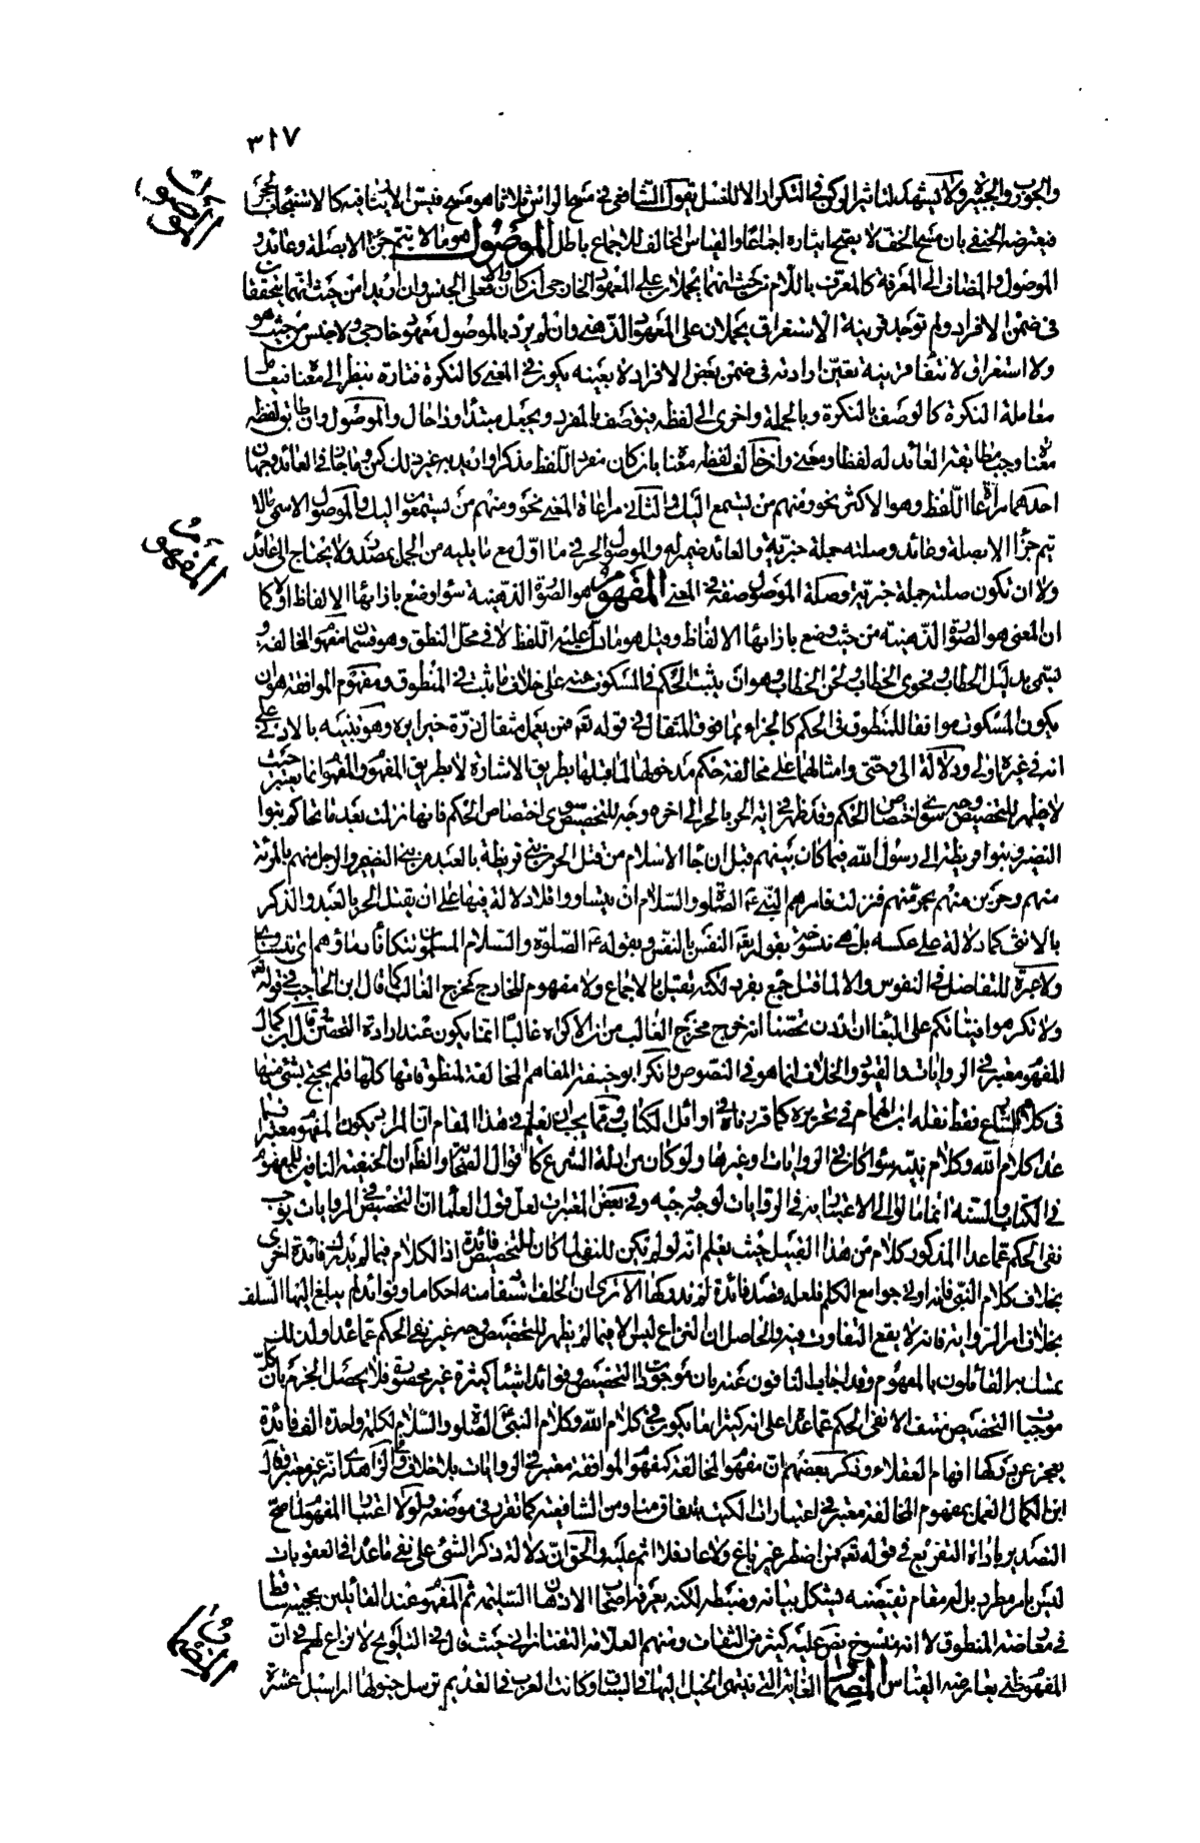 ٣١٧
الموصول
والجورب والجبيرة ولا يشهد لتأثير الركن في التكرار الا الغسل يقول الشافعي في مسح الرأس ثلاثا هو مسح فيسن الايثار فيه كالاستنجاء بالحجر
فيعترضه الحنفي بان مسح الخف لا يصح ايثاره اجماعا والقياس المخالف للاجماع باطل الموصول هو ما لا يتم جزأ الا بصلة وعائد و
الموصول والمضاف الى المعرفة كالمعرف باللام من حيث انهما يحملان على المعهود الخارجي ان كان والا فعلى الجنس وان اريدا من حيث انهما يتحققان
في ضمن الافراد ولم توجد قرينة الاستغراق يحملان على المعهود الذهني وان لم يرد بالموصول معهود خارجي ولا جنس من حيث هو
ولا استغراق لانتفاء قرينة تعين ارادته في ضمن بعض الافراد لا بعينه يكون في المعنى كالنكرة فتارة ينظر الى معناه فيعامل
معاملة النكرة كالوصف بالنكرة وبالجملة واخرى الى لفظه فيوصف بالمفرد ويجعل مبتدأ وذا حال والموصول ان طابق لفظه
معناه وجب مطابقة العائد له لفظا ومعنى وان خالف لفظه معناه بان كان مفرد اللفظ مذكرا واريد به غير ذلك كمن وما جاز في العائد وجهان
احدهما مراعاة اللفظ وهو الاكثر نحو ومنهم من يستمع اليك والثاني مراعاة المعنى نحو ومنهم من يستمعون اليك والموصول الاسمي ما لا
يتم جزأ الا بصلة وعائد وصلته جملة خبرية والعائد ضمير له والموصول الحرفي ما اول مع ما يليه من الجمل بمصدر ولا يحتاج الى عائد
المفهوم
ولا ان تكون صلته جملة خبرية وصلة الموصول صفة في المعنى المفهوم هو الصورة الذهنية سواء وضع بازائها الالفاظ او لا كما
ان المعنى هو الصورة الذهنية من حيث وضع بازائها الالفاظ وقيل هو ما دل عليه اللفظ لا في محل النطق وهو قسمان مفهوم المخالفة و
يسمى بدليل الخطاب وفحوى الخطاب ولحن الخطاب وهو ان يثبت الحكم في المسكوت عنه على خلاف ما ثبت في المنطوق ومفهوم الموافقة هو ان
يكون المسكوت موافقا للمنطوق في الحكم كالجزاء بما فوق المثقال في قوله تعالى فمن يعمل مثقال ذرة خيرا يره وهو تنبيه بالادنى على
انه في غيره اولى ودلالة الى وحتى وامثالهما على مخالفة حكم مدخولها لما قبلها بطريق الاشارة لا بطريق المفهوم والمفهوم انما يعتبر حيث
لا يظهر للتخصيص وجه سوى اختصاص الحكم وقد ظهر في اية الحر بالحر الى اخره وجه للتخصيص سوى اختصاص الحكم فانها نزلت بعد ما تحاكم بنوا
النضير وبنوا قريظة الى رسول الله فيما كان بينهم قبل ان جاء الاسلام من قتل الحر من بني قريظة بالعبد من بني النضير والرجل منهم بالمرأة
منهم وحرين منهم بحر منهم فنزلت فامرهم النبي عليه الصلاة والسلام ان يتساووا فلا دلالة فيها على ان يقتل الحر بالعبد والذكر
بالانثى كما لا دلالة على عكسه بل هي منسوخة بقوله تعالى النفس بالنفس وبقوله عليه الصلوة والسلام المسلمون تتكافأ دماؤهم اي تتساوى
ولا عبرة للتفاضل في النفوس والا لما قتل جمع بفرد لكنه يقتل بالاجماع ولا مفهوم للخارج مخرج الغالب كما قال ابن الحاجب في قوله تعالى
ولا تكرهوا فتياتكم على البغاء ان اردن تحصنا انه خرج مخرج الغالب من ان الاكراه غالبا انما يكون عند ارادة التحصن قال ابن كمال
المفهوم معتبر في الروايات والقيود والخلاف انما هو في النصوص وانكر ابو حنيفة المفاهيم المخالفة لمنطوقاتها كلها فلم يحتج بشئ منها
في كلام الشارع فقط نقله ابن الهمام في تحريره كما قررناه في اوائل الكتاب ومما يجب ان يعلم في هذا المقام ان المراد بكون المفهوم معتبرا فيما
عدا كلام الله وكلام نبيه سواء كان في الروايات او غيرها ولو كان من ادلة الشرع كاقوال الصحابة والظاهر ان الحنفية النافين للمفهوم
في الكتاب والسنة انما مالوا الى الاعتبار به في الروايات لوجه وجيه وفي بعض المعتبرات لعل قول العلماء ان التخصيص في الروايات يوجب
نفي الحكم عما عدا المذكور كلام من هذا القبيل حيث يعلم انه لو لم يكن للنفي لما كان للتخصيص فائدة اذ الكلام فيما لم يدرك فائدة اخرى
بخلاف كلام النبي فانه اوتي جوامع الكلم فلعله قصد فائدة لم ندركها الا ترى ان الخلف استفاد منه احكاما وفوائد لم يبلغ اليها السلف
بخلاف امر الرواية فانه لا يقع التفاوت فيه والحاصل ان النزاع ليس الا فيما لم يظهر للتخصيص وجه غير نفي الحكم عما عداه ولذلك
تمسك به القائلون بالمفهوم وقد اجاب النافون عنه بان موجبات التخصيص وفوائده اشياء كثيرة غير محصورة فلا يحصل الجزم بان كل
موجبات التخصيص منتف الا نفي الحكم عما عداه على انه كثيرا ما يكون في كلام الله وكلام النبي عليه الصلاة والسلام لكلمة واحدة الف فائدة
يعجز عن دركها افهام العقلاء وذكر بعضهم ان مفهوم المخالفة كمفهوم الموافقة معتبر في الروايات بلا خلاف وفي الزاهدي انه غير معتبر وقال
ابن الكمال العمل بمفهوم المخالفة معتبر في اعتبارات الكتب باتفاق منا ومن الشافعية كما تقرر في موضعه ولولا اعتبار المفهوم لما صح
التصدير باداة التفريع في قوله تعالى فمن اضطر غير باغ ولا عاد فلا اثم عليه والحق ان دلالة ذكر الشئ على نفي ما عداه في العقوبات
ليس بامر مطرد بل له مقام يقتضيه يشكل بيانه وضبطه لكنه يعرفه اصحاب الاذهان السليمة ثم المفهوم عند القائلين بحجيته ساقط
في معارضة المنطوق لا انه منسوخ نص عليه كثير من الثقات ومنهم العلامة التفتازاني حيث قال في التلويح لا نزاع لهم في ان
المضمار
المفهوم ظني يعارضه القياس المضمار الغاية التي ينتهي الخيل اليها في السباق وكانت العرب في القديم ترسل خيولها ارسال عشرة